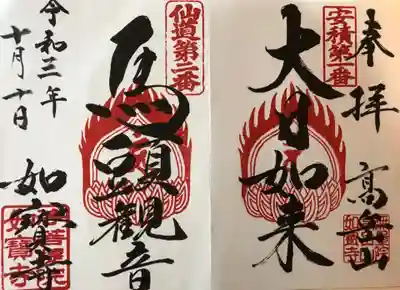 奉拝
安積第一番
大日如来
高岳山
仙道第二番
馬頭観音
令和三年
十月十日
如寶寺
如寶寺